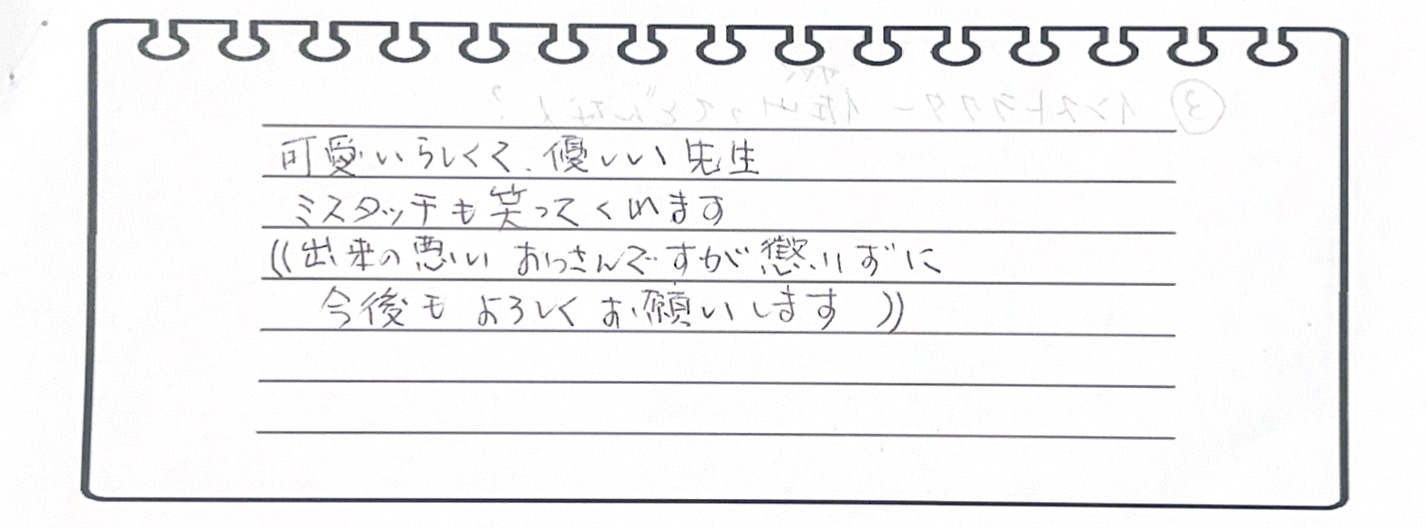 可愛いらしくて、優しい先生
ミスタッチも笑ってくれます
((出来の悪いおっさんですが懲りずに
今後もよろしくお願いします))